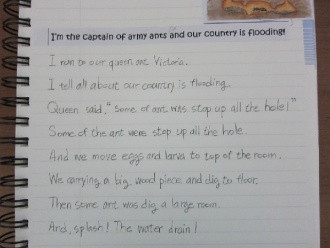 I'm the captain of army ants and our country is flooding!
I run to our queen ant Victoria.
I tell all about our country is flooding.
Queen said, "Some of ant was stop up all the hole!"
Some of the ant were stop up all the hole.
And we move eggs and larva to top of the room.
We carrying a big wood piece and dig to floor.
Then some ant was dig a large room.
And, splash! The water drain!